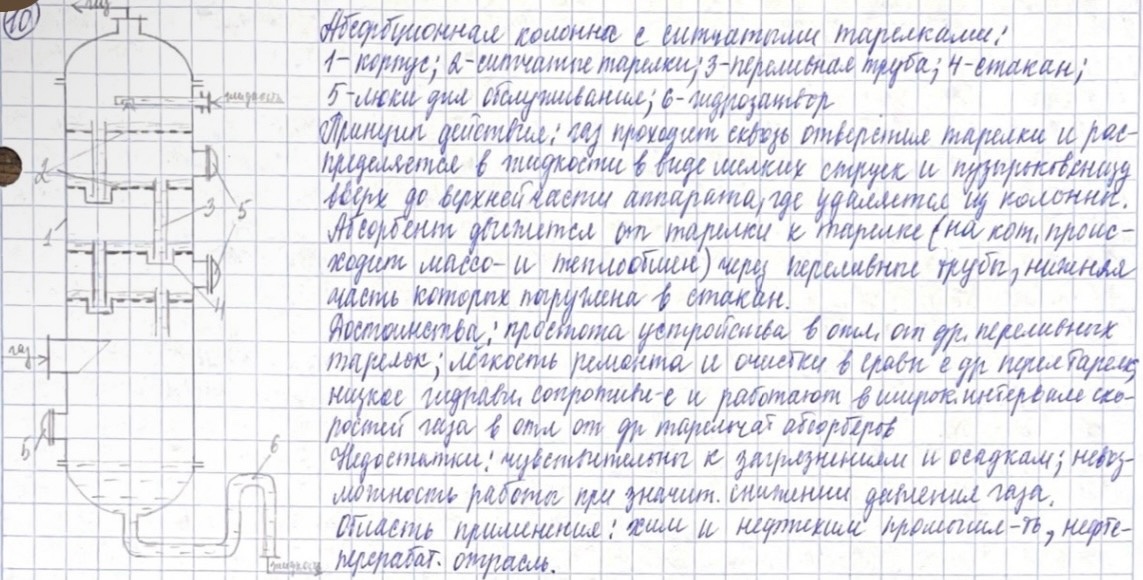 10
газ
Абсорбционная колонна с ситчатыми тарелками:
1-корпус; 2-ситчатые тарелки; 3-переливная труба; 4-стакан;
жидкость
5-люки для обслуживания; 6-гидрозатвор
Принцип действия: газ проходит сквозь отверстия тарелки и рас-
пределяется в жидкости в виде мелких струек и пузырьков снизу
2
вверх до верхней части аппарата, где удаляется из колонны.
3
5
1
Абсорбент движется от тарелки к тарелке (на кот. проис-
ходит массо- и теплообмен) через переливные трубы, нижняя
4
часть которых погружена в стакан.
Достоинства: простота устройства в отл. от др. переливных
газ
тарелок; лёгкость ремонта и очистки в сравн с др перел тарелк,
низкое гидравл. сопротивл-е и работают в широк. интервале ско-
ростей газа в отл от др тарельчат абсорберов
5
6
Недостатки: чувствительны к загрязнениям и осадкам; невоз-
можность работы при значит. снижении давления газа.
Область применения: хим и нефтехим промышл-ть, нефте-
перерабат. отрасль.
жидкость